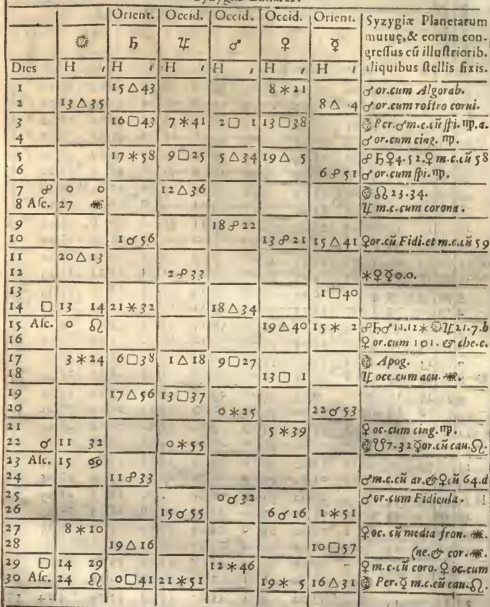 Orient. Occid. Occid. Occid. Orient. Syzygiæ Planetarum
mutuę, & eorum con-
☉ ♄ ♃ ♂ ♀ ☿ gressus cū illustriorib.
Dies H ′ H ′ H ′ H ′ H ′ H ′ aliquibus stellis fixis.
1 15 △ 43 8 ✶ 21 ♂ or. cum Algorab.
2 13 △ 35 8 △ 4 ♂ or. cum rostro corui.
3 16 □ 43 7 ✶ 41 2 □ 1 13 □ 38 Per. ♂ m.c. cū spi. ♍. a.
4 ♂ or. cum cing. ♍.
5 17 ✶ 58 9 □ 25 5 △ 34 19 △ 5 ☍ ♄ ♀ 4. 52. ♀ m.c. cū 58
6 6 ☍ 51 ♂ or. cum spi. ♍.
7 ☍ 0 0 12 △ 36 ☊ 23. 34.
8 Asc. 27 ♒ ♃ m.c. cum corona.
9 18 ☍ 22
10 1 ☌ 56 13 ☍ 21 15 △ 41 ♀ or. cum Fidi. et m.c. cū 59
11 20 △ 13
12 2 ☍ 33 ✶ ♀ ☿ 0. 0.
13 1 □ 40
14 □ 13 14 21 ✶ 32 18 △ 34
15 Asc. 0 ♌ 19 △ 40 15 ✶ 2 ☍ ♄ ♂ 11. 12 ✶ ☉ ♃ 21. 7. b
16 ♀ or. cum 101. & che. c.
17 3 ✶ 24 6 □ 38 1 △ 18 9 □ 27 Apog.
18 13 □ 1 ♃ occ. cum acu. ♒.
19 17 △ 56 13 □ 37
20 0 ✶ 25 22 ☌ 53
21 5 ✶ 39 ♀ oc. cum cing. ♍.
22 ☌ 11 32 0 ✶ 55 ☋ 7. 32 ♀ or. cū cau. ♌.
23 Asc. 15 ♋
24 11 ☍ 33 ♂ m.c. cū ar. & ♀ cū 64. d
25 0 ☌ 32 ♂ or. cum Fidicula.
26 15 ☌ 55 6 ☌ 16 1 ✶ 51
27 8 ✶ 10 ♀ oc. cū media fron. ♒.
28 19 △ 16 10 □ 57 (ne. & cor. ♒.
29 □ 14 29 12 ✶ 46 ♀ m.c. cū coro. ♀ oc. cum
30 Asc. 24 ♌ 0 □ 41 21 ✶ 51 19 ✶ 5 16 △ 31 Per. ☿ m.c. cū cau. ♌.